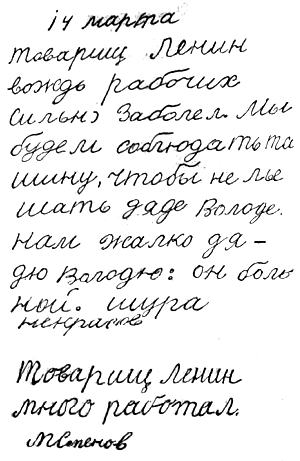 14 марта
товарищ Ленин
вождь рабочих
сильно заболел. Мы
будем соблюдать ти
шину, чтобы не ме
шать дяде Володе.
нам жалко дя-
дю Володю: он боль
ной. шура
некрасов
Товарищ Ленин
много работал.
М Семенов